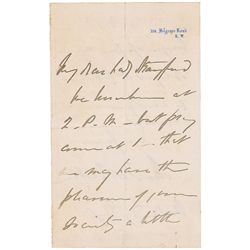 Belgrave Road
S.W.
My dear Lady Strafford
we luncheon at
2. P.M. but pray
come at 1. that
we may have the
pleasure of your
society a little